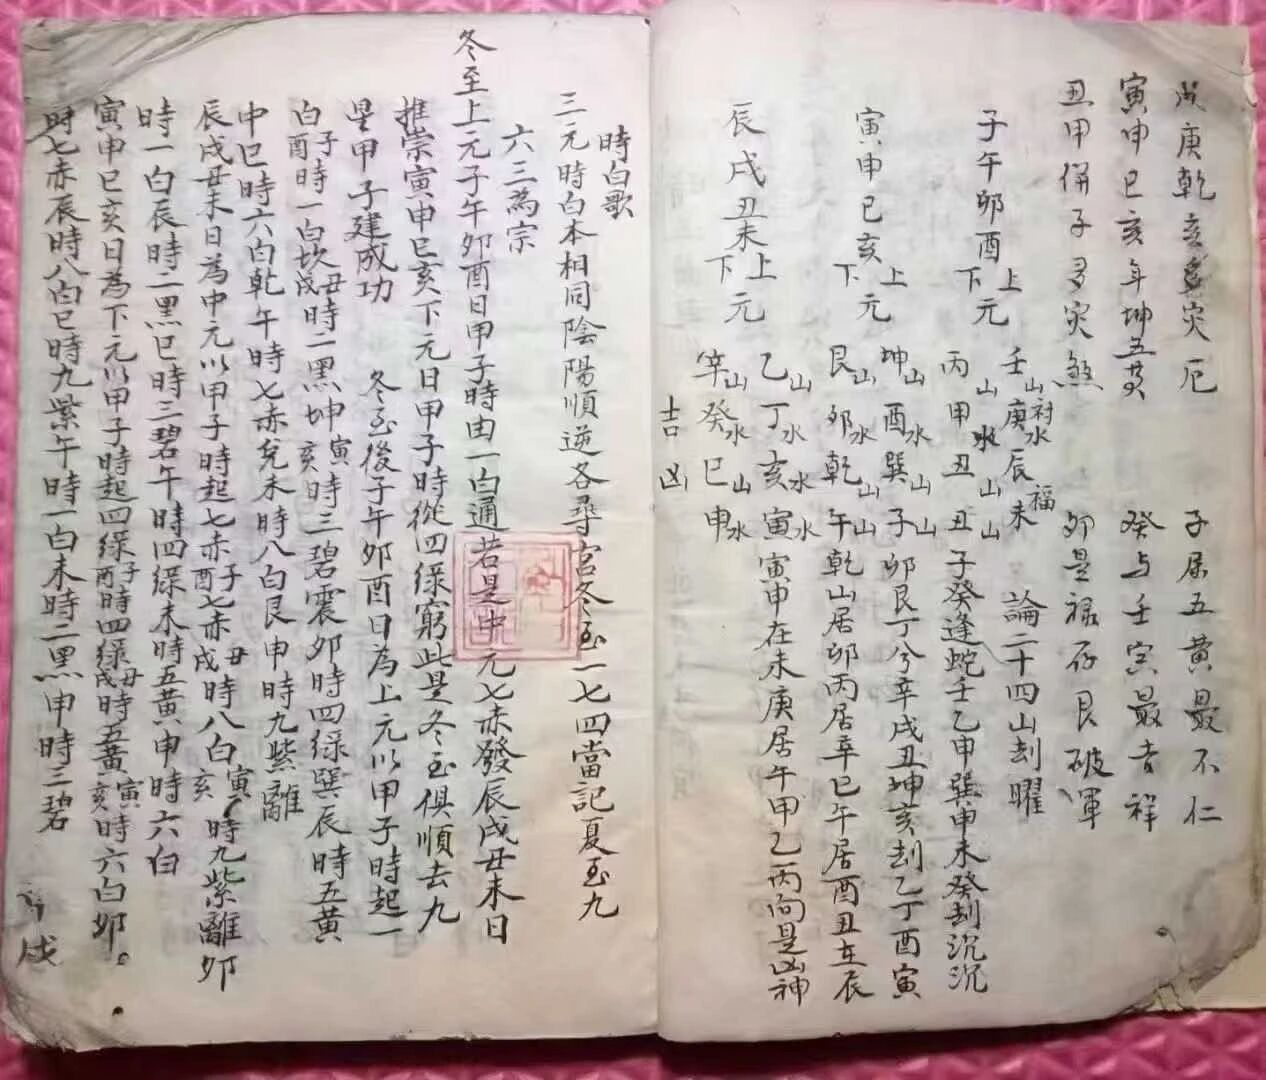 戌庚乾亥多灾厄 子居五黄最不仁
寅申巳亥年坤五黄 癸与壬寅最吉祥
丑甲併子多灾煞 卯是禄存艮破軍
子午卯酉上下元 壬山庚水辰山未山 福 論二十四山刦曜
丙山甲水丑山丑 子癸逢蛇壬乙申巽申未癸刦沉沉
寅申巳亥上下元 坤山酉水巽山子山 卯艮丁兮辛戌丑坤亥刦乙丁酉寅
艮山卯水乾山午山 乾山居卯丙居辛巳午居酉丑在辰
辰戌丑未上下元 乙山丁水亥水寅水 寅申在未庚居午甲乙丙向是凶神
辛山癸水巳山申水
吉凶
時白歌
三元時白本相同陰陽順逆各尋宮冬至一七四當記夏至九
六三為宗
冬至上元子午卯酉日甲子時由一白通若是中元七赤發辰戌丑未日
推崇寅申巳亥下元日甲子時從四緑窮此是冬至俱順去九
星甲子建成功 冬至後子午卯酉日為上元以甲子時起一
白子酉時一白坎丑戌時二黑坤寅亥時三碧震卯時四緑巽辰時五黄
中巳時六白乾午時七赤兌未時八白艮申時九紫離
辰戌丑未日為中元以甲子時起七赤子酉七赤丑戌時八白寅亥時九紫離卯
時一白辰時二黑巳時三碧午時四緑未時五黄申時六白
寅申巳亥日為下元以甲子時起四緑子酉時四緑丑戌時五黄寅亥時六白卯
時七赤辰時八白巳時九紫午時一白未時二黑申時三碧